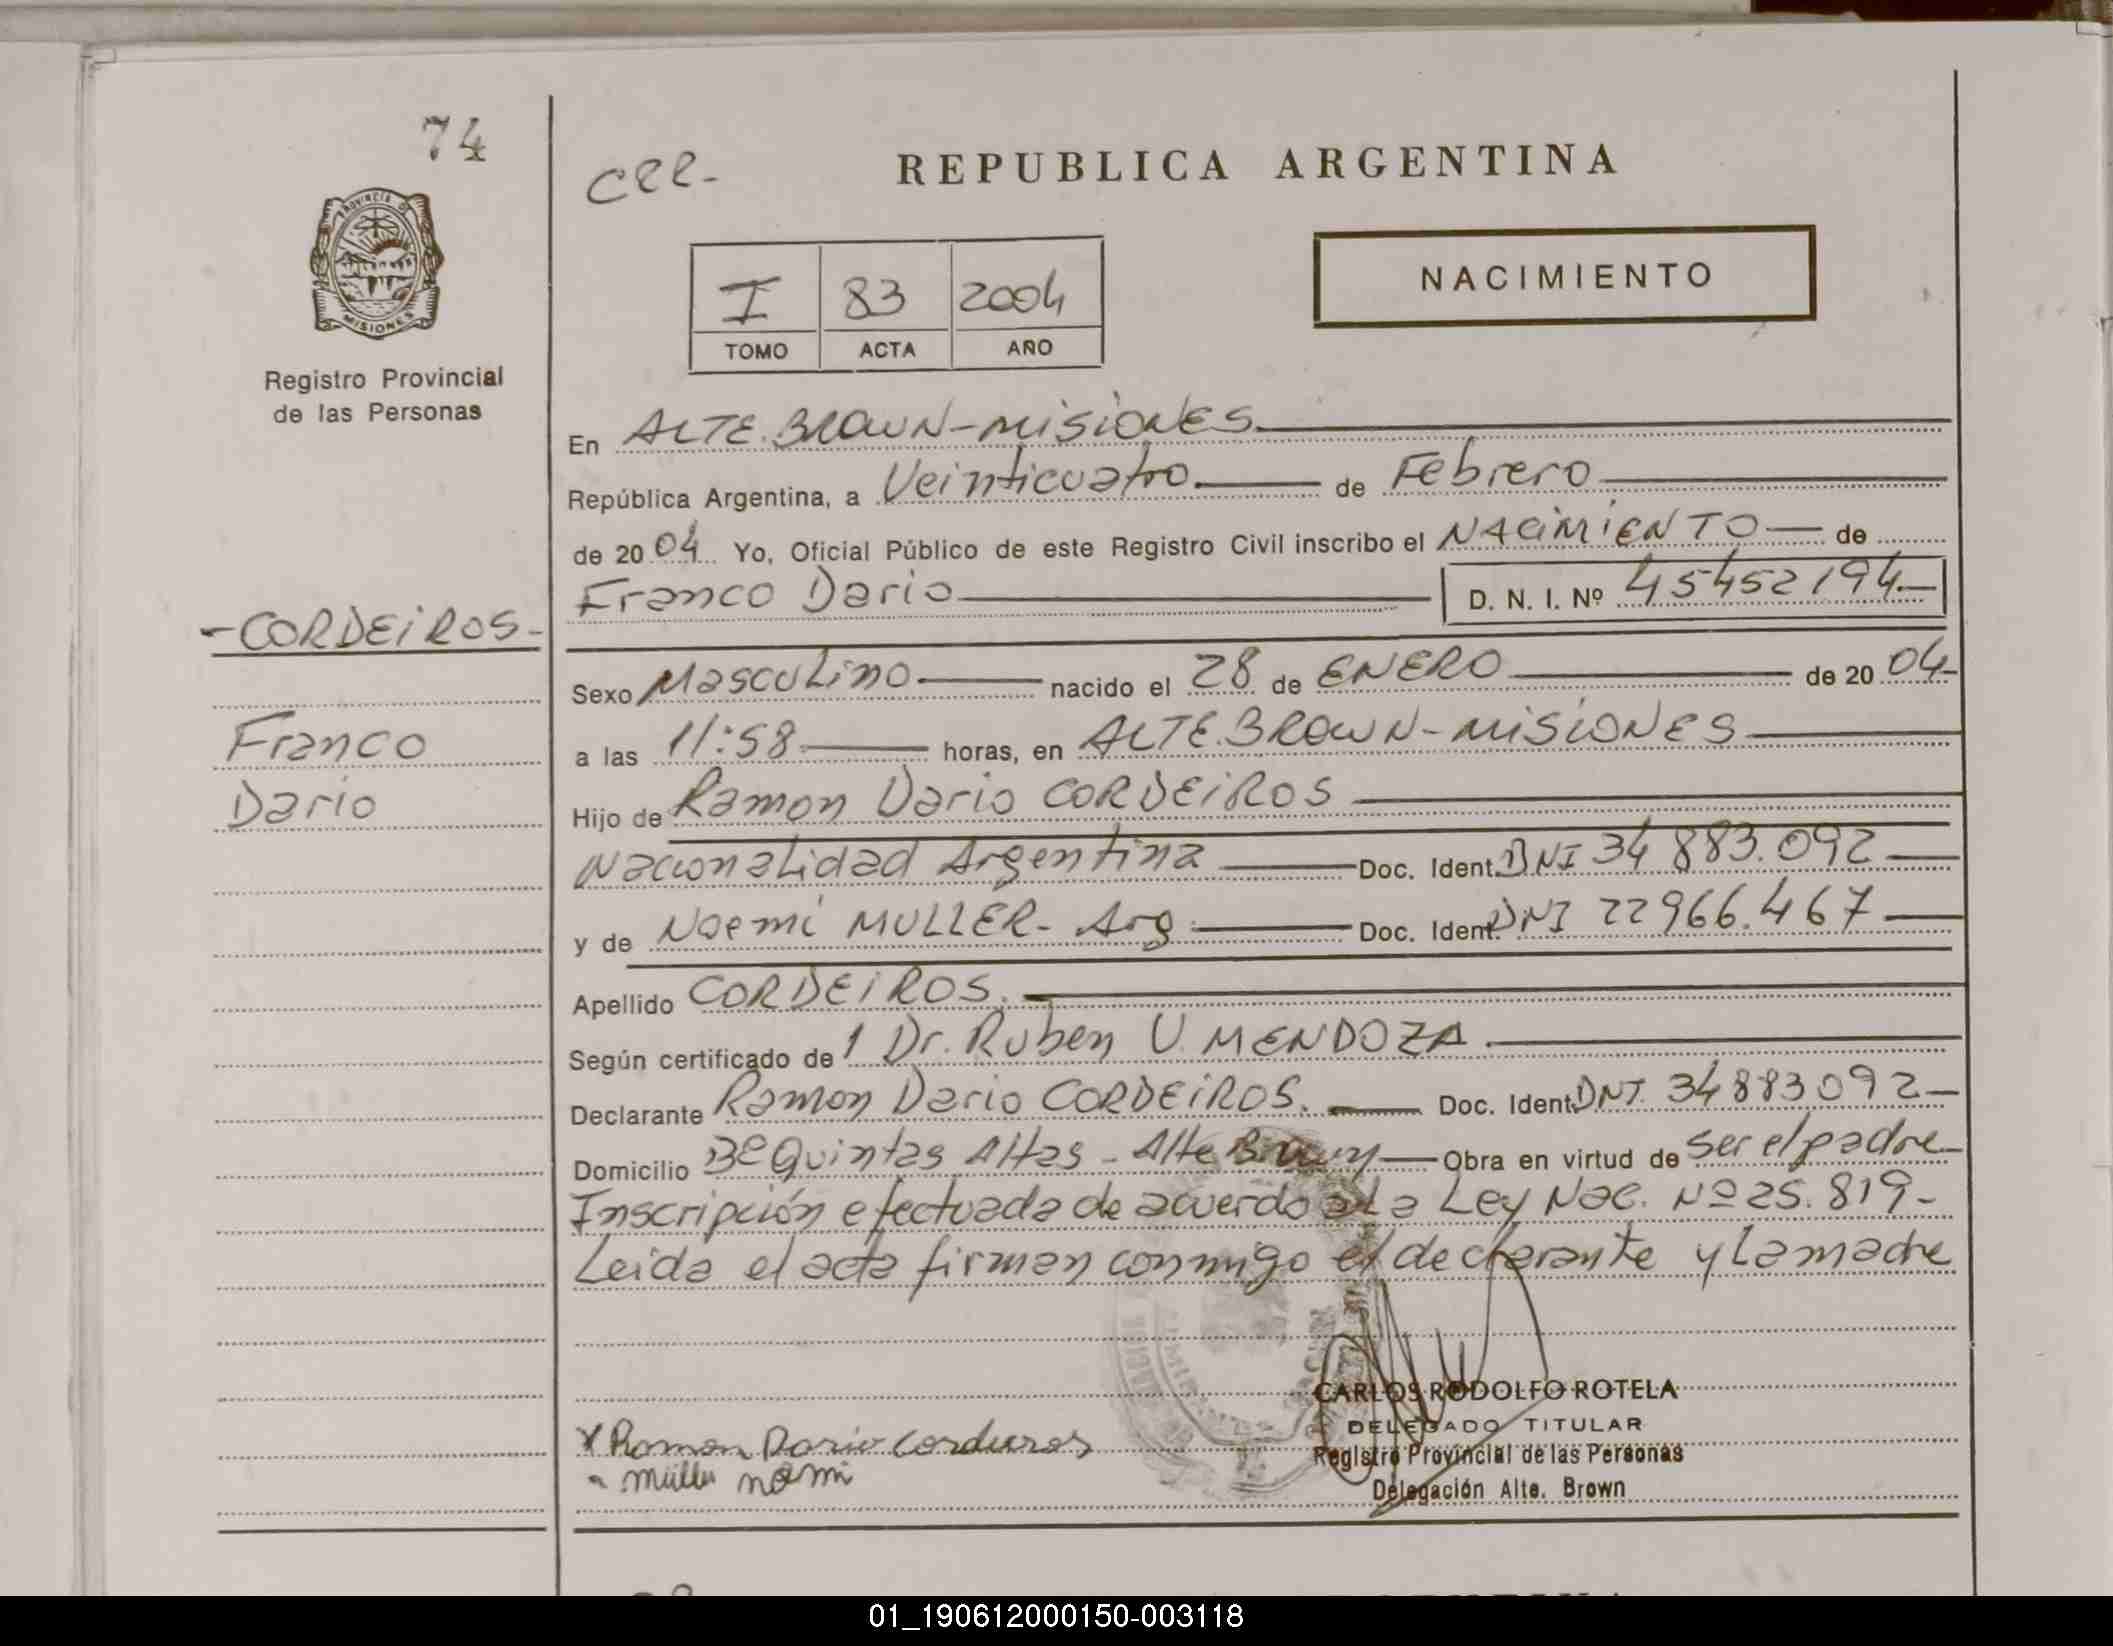 74
PROVINCIA DE
MISIONES
Registro Provincial
de las Personas
- CORDEIROS -
Franco
Dario
REPUBLICA ARGENTINA
I 83 2004
TOMO ACTA AÑO
NACIMIENTO
En ALTE. BROWN - MISIONES
República Argentina, a Veinticuatro de Febrero
de 2004 Yo, Oficial Público de este Registro Civil inscribo el NACIMIENTO de
Franco Dario D. N. I. Nº 45452194
Sexo Masculino nacido el 28 de ENERO de 2004
a las 11:58 horas, en ALTE. BROWN - MISIONES
Hijo de Ramon Dario CORDEIROS
Nacionalidad Argentina Doc. Ident. DNI 34 883.092
y de Noemi MULLER - Arg Doc. Ident. DNI 22966.467
Apellido CORDEIROS.
Según certificado de 1 Dr. Ruben U. MENDOZA
Declarante Ramon Dario CORDEIROS. Doc. Ident. DNI. 34883092
Domicilio Bº Quintas Altas - Alte Brown Obra en virtud de ser el padre
Inscripción efectuada de acuerdo a La Ley Nac. Nº 25.819 -
Leida el acta firman conmigo el declarante y La madre
CARLOS RODOLFO ROTELA
DELEGADO TITULAR
Registro Provincial de las Personas
Delegación Alte. Brown
x Ramon Dario Cordeiros
müller noemi
01_190612000150-003118